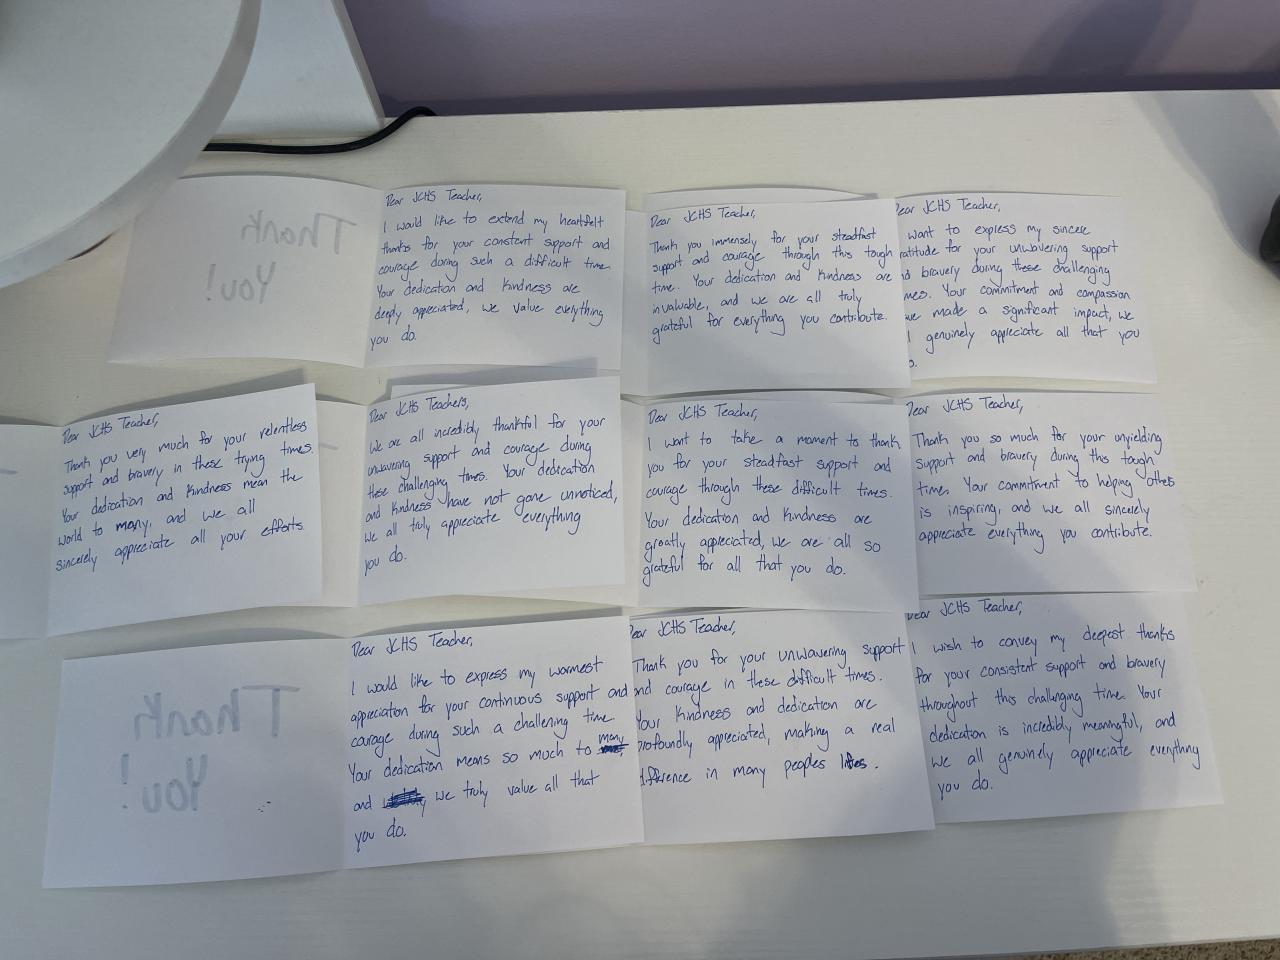 Thank
You!
Dear JCHS Teacher,
I would like to extend my heartfelt
thanks for your constant support and
courage during such a difficult time.
Your dedication and kindness are
deeply appreciated, we value everything
you do.
Dear JCHS Teacher,
Thank you immensely for your steadfast
support and courage through this tough
time. Your dedication and kindness are
invaluable, and we are all truly
grateful for everything you contribute.
Dear JCHS Teacher,
want to express my sincere
ratitude for your unwavering support
nd bravery during these challenging
mes. Your commitment and compassion
ve made a significant impact, we
l genuinely appreciate all that you
o.
Dear JCHS Teacher,
Thank you very much for your relentless
support and bravery in these trying times.
Your dedication and kindness mean the
world to many, and we all
sincerely appreciate all your efforts.
Dear JCHS Teachers,
We are all incredibly thankful for your
unwavering support and courage during
these challenging times. Your dedication
and kindness have not gone unnoticed,
we all truly appreciate everything
you do.
Dear JCHS Teacher,
I want to take a moment to thank
you for your steadfast support and
courage through these difficult times.
Your dedication and kindness are
greatly appreciated, we are all so
grateful for all that you do.
Dear JCHS Teacher,
Thank you so much for your unyielding
support and bravery during this tough
time. Your commitment to helping others
is inspiring, and we all sincerely
appreciate everything you contribute.
Thank
You!
Dear JCHS Teacher,
I would like to express my warmest
appreciation for your continuous support and
courage during such a challening time.
Your dedication means so much to many
and we truly value all that
you do.
Dear JCHS Teacher,
Thank you for your unwavering support
and courage in these difficult times.
Your kindness and dedication are
profoundly appreciated, making a real
difference in many peoples lifes.
Dear JCHS Teacher,
I wish to convey my deepest thanks
for your consistent support and bravery
throughout this challenging time. Your
dedication is incredibly meaningful, and
we all genuinely appreciate everything
you do.